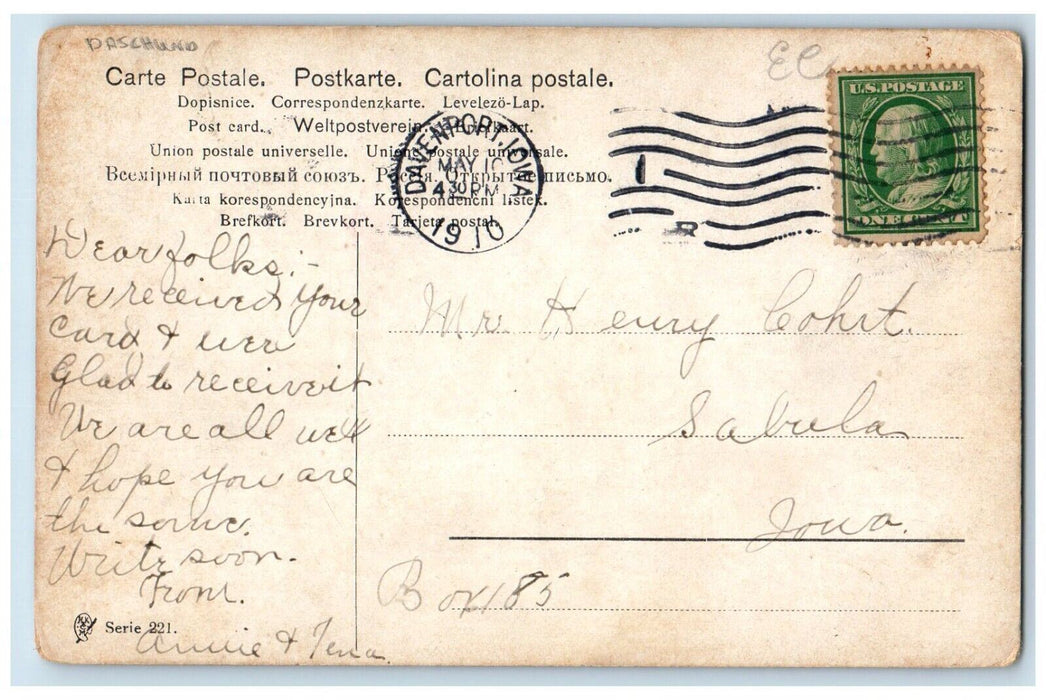 DASCHUND
EC
Carte Postale. Postkarte. Cartolina postale.
Dopisnice. Correspondenzkarte. Levelező-Lap.
Post card. Weltpostverein. Briefkaart.
Union postale universelle. Unione postale universale.
Всемірный почтовый союзъ. Россія. Открытое письмо.
Karta korespondencyjna. Korespondenční lístek.
Brefkort. Brevkort. Tarjeta postal.
DAVENPORT, IOWA
MAY 10
4 30 PM
1910
1
U.S. POSTAGE
ONE CENT
Dear folks:-
We received your
card & were
Glad to receive it
We are all well
& hope you are
the same.
Write soon.
From.
Annie & Tena
Mr. Henry Cohrt.
Sabula
Iowa.
Box 185
Serie 221.